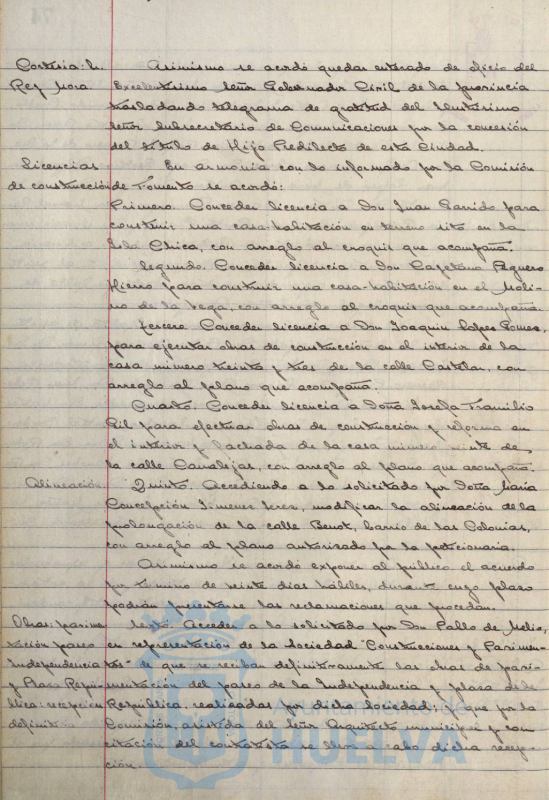 Cortesia: h. Asimismo se acordó quedar enterado de oficio del
Rey Mora Excelentisimo Señor Gobernador Civil de la provincia
trasladando telegrama de gratitud del Ilustrisimo
Señor Subsecretario de Comunicaciones por la concesión
del titulo de Hijo Predilecto de esta Ciudad.
Licencias En armonia con lo informado por la Comisión
de construcción de Fomento se acordó:
Primero. Conceder licencia a Don Juan Garrido para
construir una casa-habitación en terreno sito en la
Isla Chica, con arreglo al croquis que acompaña.
Segundo. Conceder licencia a Don Cayetano Peguero
Hierro para construir una casa-habitación en el Moli-
no de la Vega, con arreglo al croquis que acompaña.
Tercero Conceder licencia a Don Joaquin Lopez Gomez,
para ejecutar obras de construcción en el interior de la
casa número treinta y tres de la calle Castelar, con
arreglo al plano que acompaña.
Cuarto. Conceder licencia a Doña Josefa
Gil para efectuar obras de construcción y reforma en
el interior y fachada de la casa número veinte de
la calle Canalejas, con arreglo al plano que acompaña.
Alineación Quinto. Accediendo a lo solicitado por Doña Maria
Concepción Jimenez Jerez, modificar la alineación de la
prolongación de la calle Benot, barrio de las Colonias,
con arreglo al plano autorizado por la peticionaria.
Asimismo se acordó exponer al público el acuerdo
por término de veinte dias hábiles, durante cuyo plazo
podrán presentarse las reclamaciones que procedan.
Obras: pavimen Sexto. Acceder a lo solicitado por Don Pablo de Melio,
tación paseo en representación de la Sociedad "Construcciones y Pavimen-
Independencia tos" de que se reciban definitivamente las obras de pavi-
y Plaza Repú- mentación del paseo de la Independencia y plaza de la
blica: recepción Republica, realizadas por dicha Sociedad; y que por la
definitiva Comisión, asistida del Señor Arquitecto municipal y con
citación del contratista se lleve a cabo dicha recep-
ción.
Ayuntamiento de
HUELVA